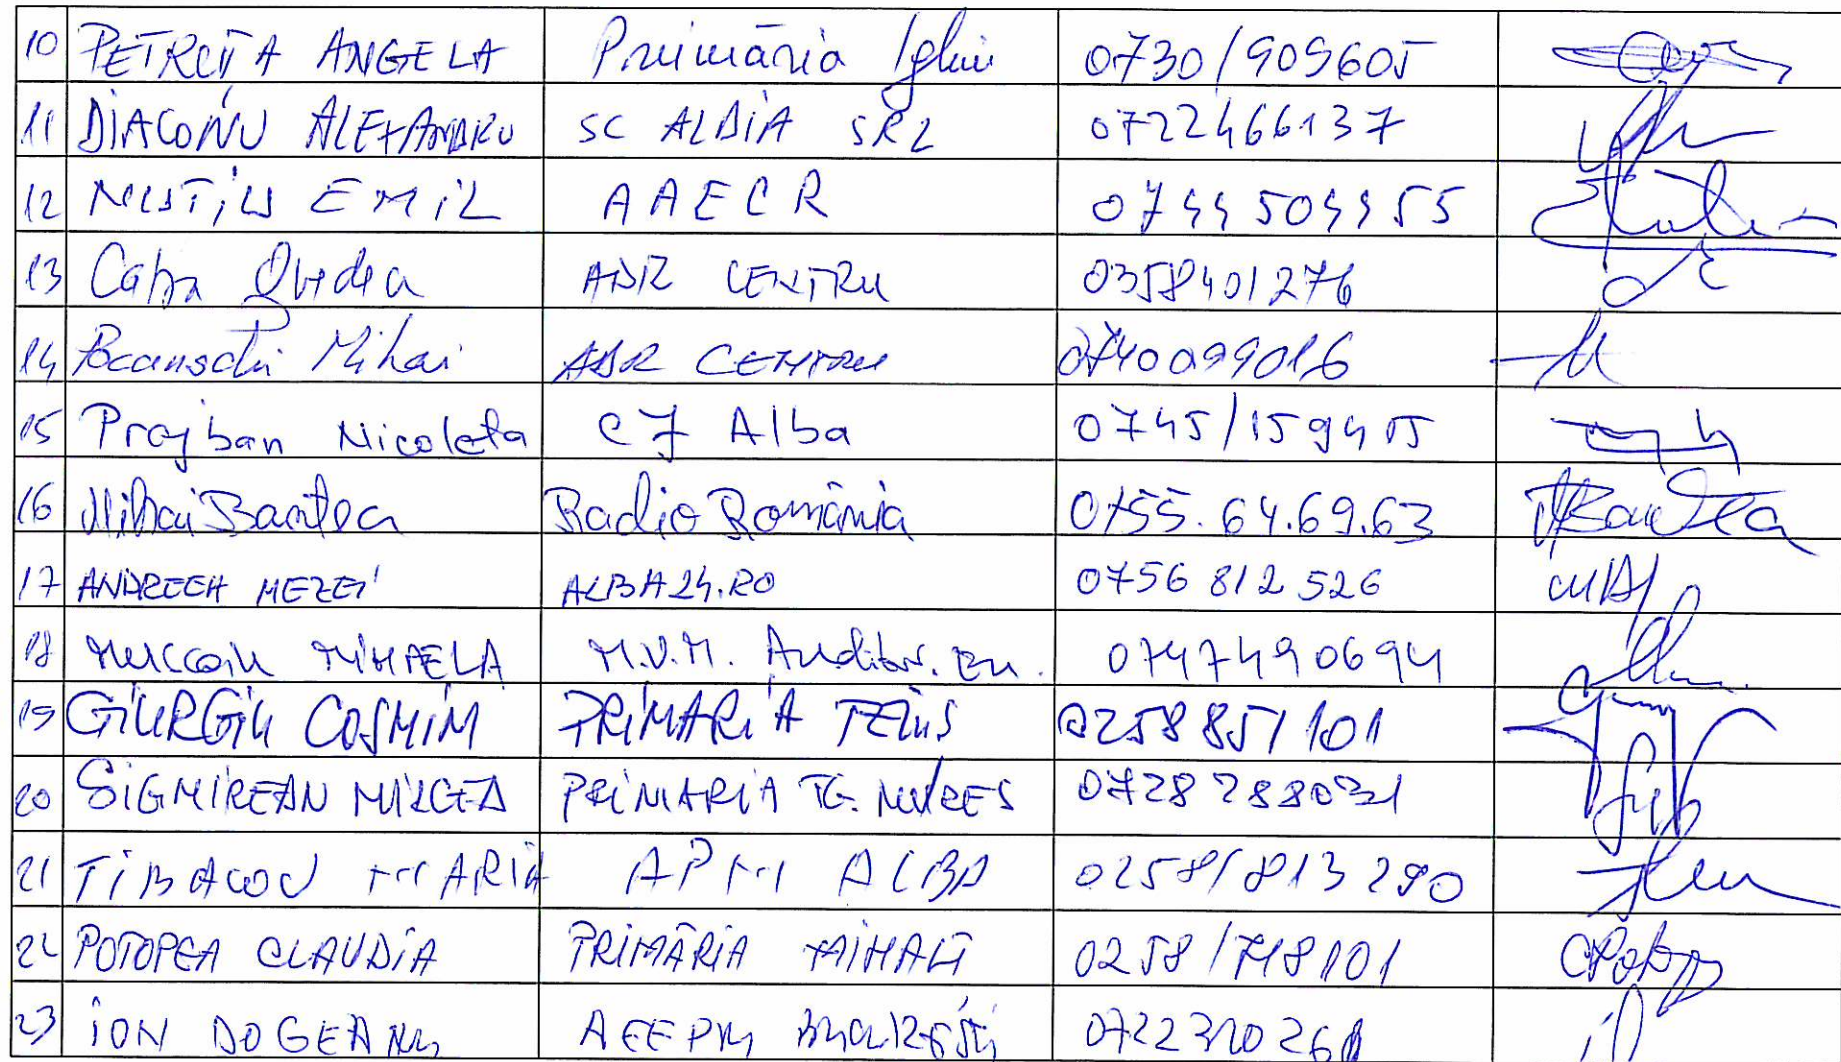 10 PETRUȚA ANGELA Primăria Ighiu 0730/909605
11 DIACONU ALEXANDRU SC ALBIA SRL 0722466137
12 EMIL AAECR
13 Ovidia ADR CENTRU 0358401276
14 Mihai ADR CENTRU 0740099016
15 Prajban Nicoleta CJ Alba 0745/159415
16 Mihai Bantea Radio România 0755.64.69.63
17 ANDREEA MEZEI ALBA24.RO 0756 812 526
18 MIHAELA M.V.M. 0747490694
19 GIURGIU COSMIN PRIMARIA TEIUS 0258 857101
20 SIGMIREAN MIRCEA PRIMARIA TG. MURES 0728288031
21 MARIA APM ALBA 0258/813290
22 POTOPEA CLAUDIA PRIMĂRIA MIHALȚ 0258/748101
23 ION DOGEANU